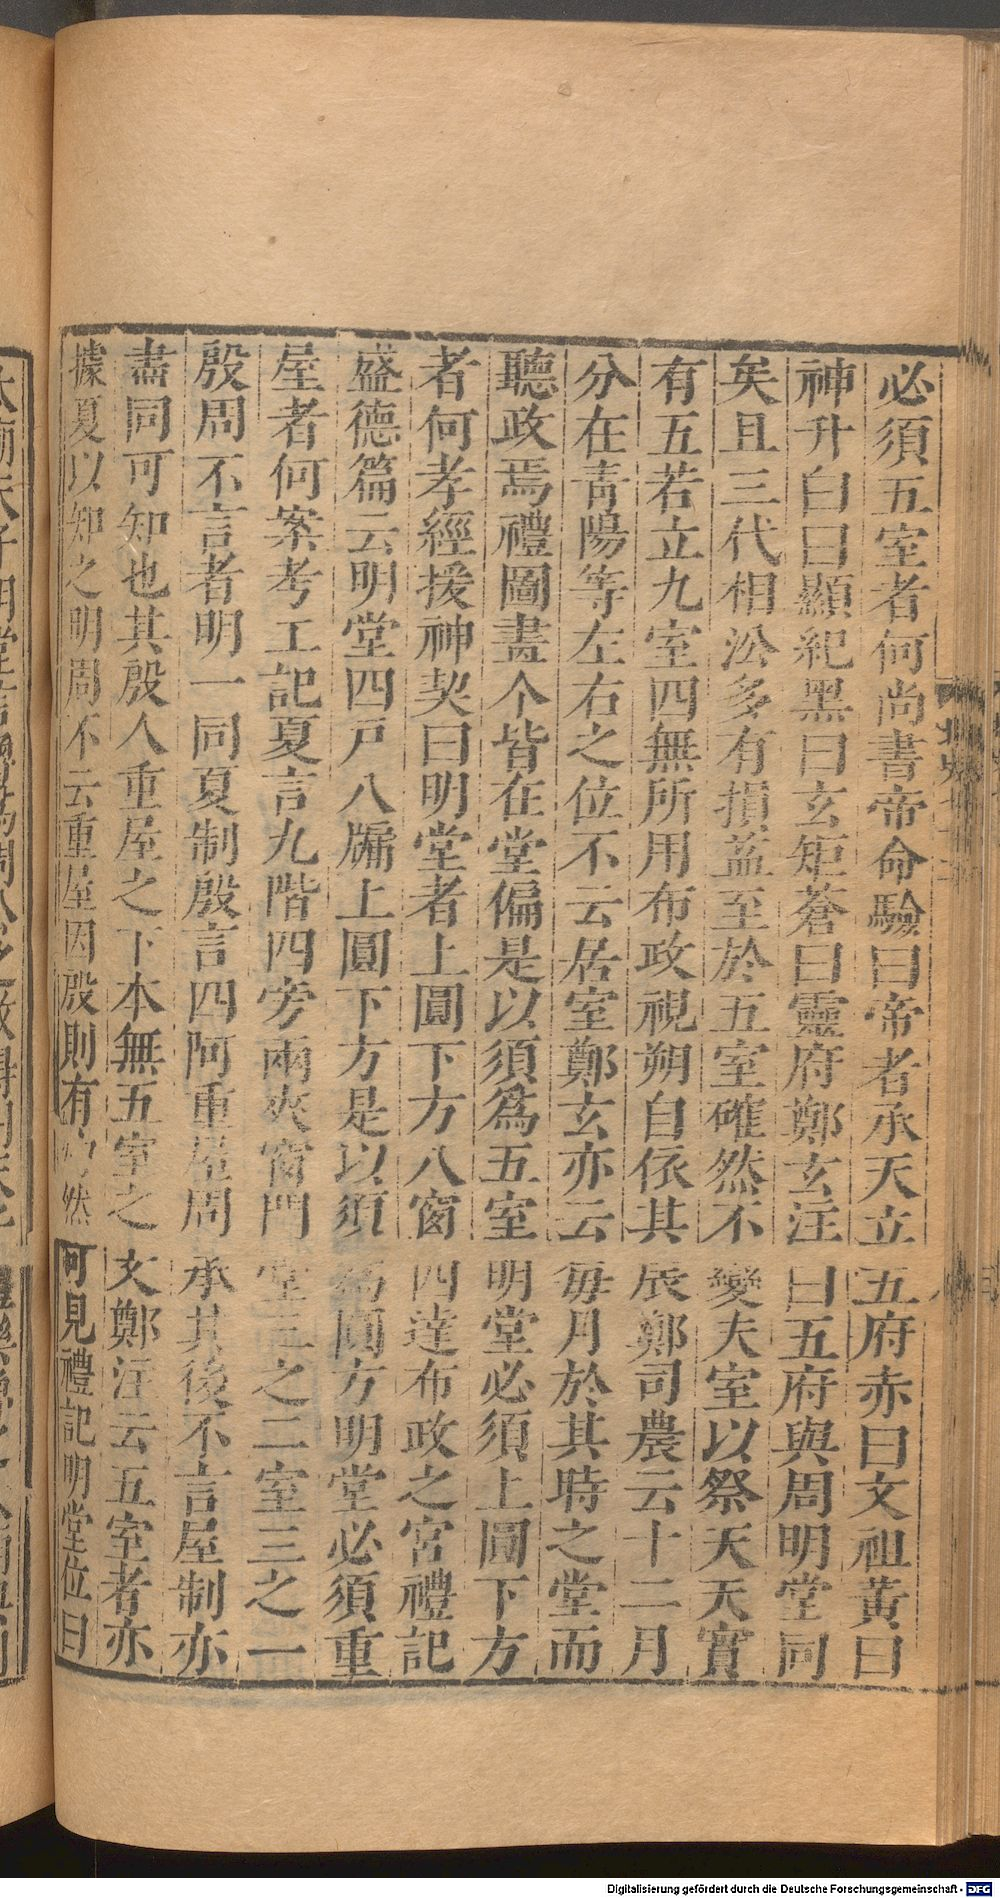 必須五室者何尚書帝命驗曰帝者承天立五府赤曰文祖黃曰
神升白曰顯紀黑曰玄矩蒼曰靈府鄭玄注曰五府與周明堂同
矣且三代相沿多有損益至於五室確然不變夫室以祭天天實
有五若立九室四無所用布政視朔自依其辰鄭司農云十二月
分在青陽等左右之位不云居室鄭玄亦云每月於其時之堂而
聽政焉禮圖畫个皆在堂偏是以須為五室明堂必須上圓下方
者何孝經援神契曰明堂者上圓下方八窗四達布政之宮禮記
盛德篇云明堂四戶八牖上圓下方是以須為圓方明堂必須重
屋者何案考工記夏言九階四旁兩夾窗門堂三之二室三之一
殷周不言者明一同夏制殷言四阿重屋周承其後不言屋制亦
盡同可知也其殷人重屋之下本無五室之文鄭注云五室者亦
據夏以知之明周不云重屋因殷則有 然可見禮記明堂位曰
Digitalisierung gefördert durch die Deutsche Forschungsgemeinschaft - DFG